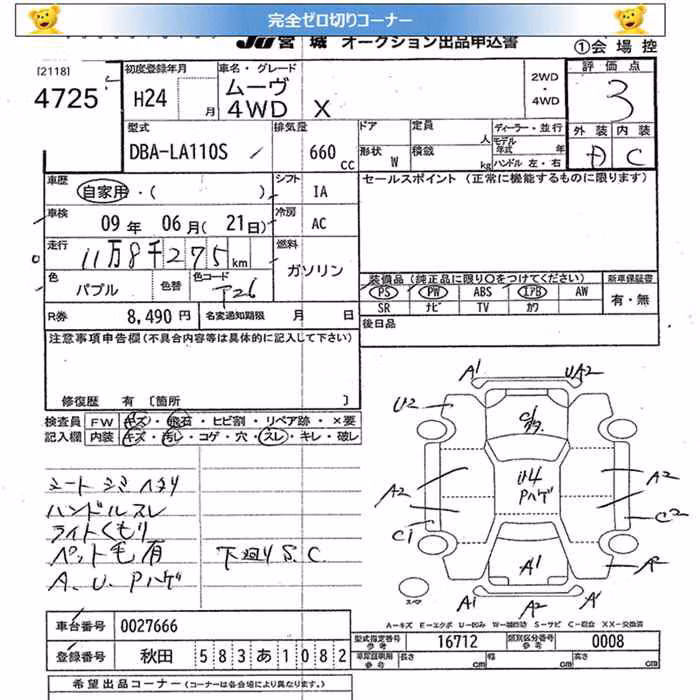 完全ゼロ切りコーナー
JU宮城 オークション出品申込書
①会場控
[2118]
4725
初度登録年月
H24 月
車名・グレード
ムーヴ
4WD X
2WD
・
4WD
評価点
3
外装 内装
D C
型式
DBA-LA110S
排気量
660 cc
ドア
形状 W
定員 人
積載 kg
ディーラー・並行
モデル年式 年
ハンドル 左・右
車歴
自家用・( )
シフト IA
セールスポイント (正常に機能するものに限ります)
車検
09年 06月(21日)
冷房 AC
走行
11万8千275km
燃料
ガソリン
色
パプル
色替
色コード
T26
装備品 (純正品に限り○をつけてください)
新車保証書
PS PW ABS エアB AW
有・無
SR ナビ TV カワ
R券 8,490円
名変通知期限 月 日
後日品
注意事項申告欄(不具合内容等は具体的に記入して下さい)
修復歴 有 〔箇所 〕
検査員
記入欄
FW キズ・飛石・ヒビ割・リペア跡・×要
内装 キズ・汚レ・コゲ・穴・スレ・キレ・破レ
シートシミヘタリ
ハンドルスレ
ライトくもり
ペット毛有 下廻りS.C.
A.U.Pハゲ
A1 UA2
U2
A2 U4 A2
Pハゲ
C1 C2
A1
A1 A2 A1
スペア
A-キズ E-エクボ U-凹み W-補修跡 S-サビ C-腐食 XX-交換済
車台番号 0027666
登録番号 秋田 583あ1082
型式指定番号 参考 16712
類別区分番号 参考 0008
車庫証明用 参考 長さ cm 幅 cm 高さ cm
希望出品コーナー (コーナーは各会場により異なります。)